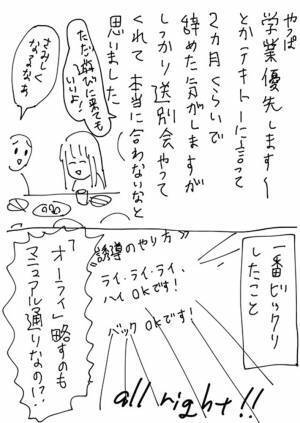 やっぱ
学業優先します〜
とかテキトーに言って
2カ月くらいで
辞めた気がしますが
しっかり送別会やって
くれて本当に合わないなと
思いました
ただ遊びに来ても
いいよ!
さみしく
なるなぁ
一番ビックリ
したこと
誘導のやり方》
ライ・ライ・ライ、
ハイOKです!
バックOKです!
all right!!
「オーライ」略すのも
マニュアル通りなの!?